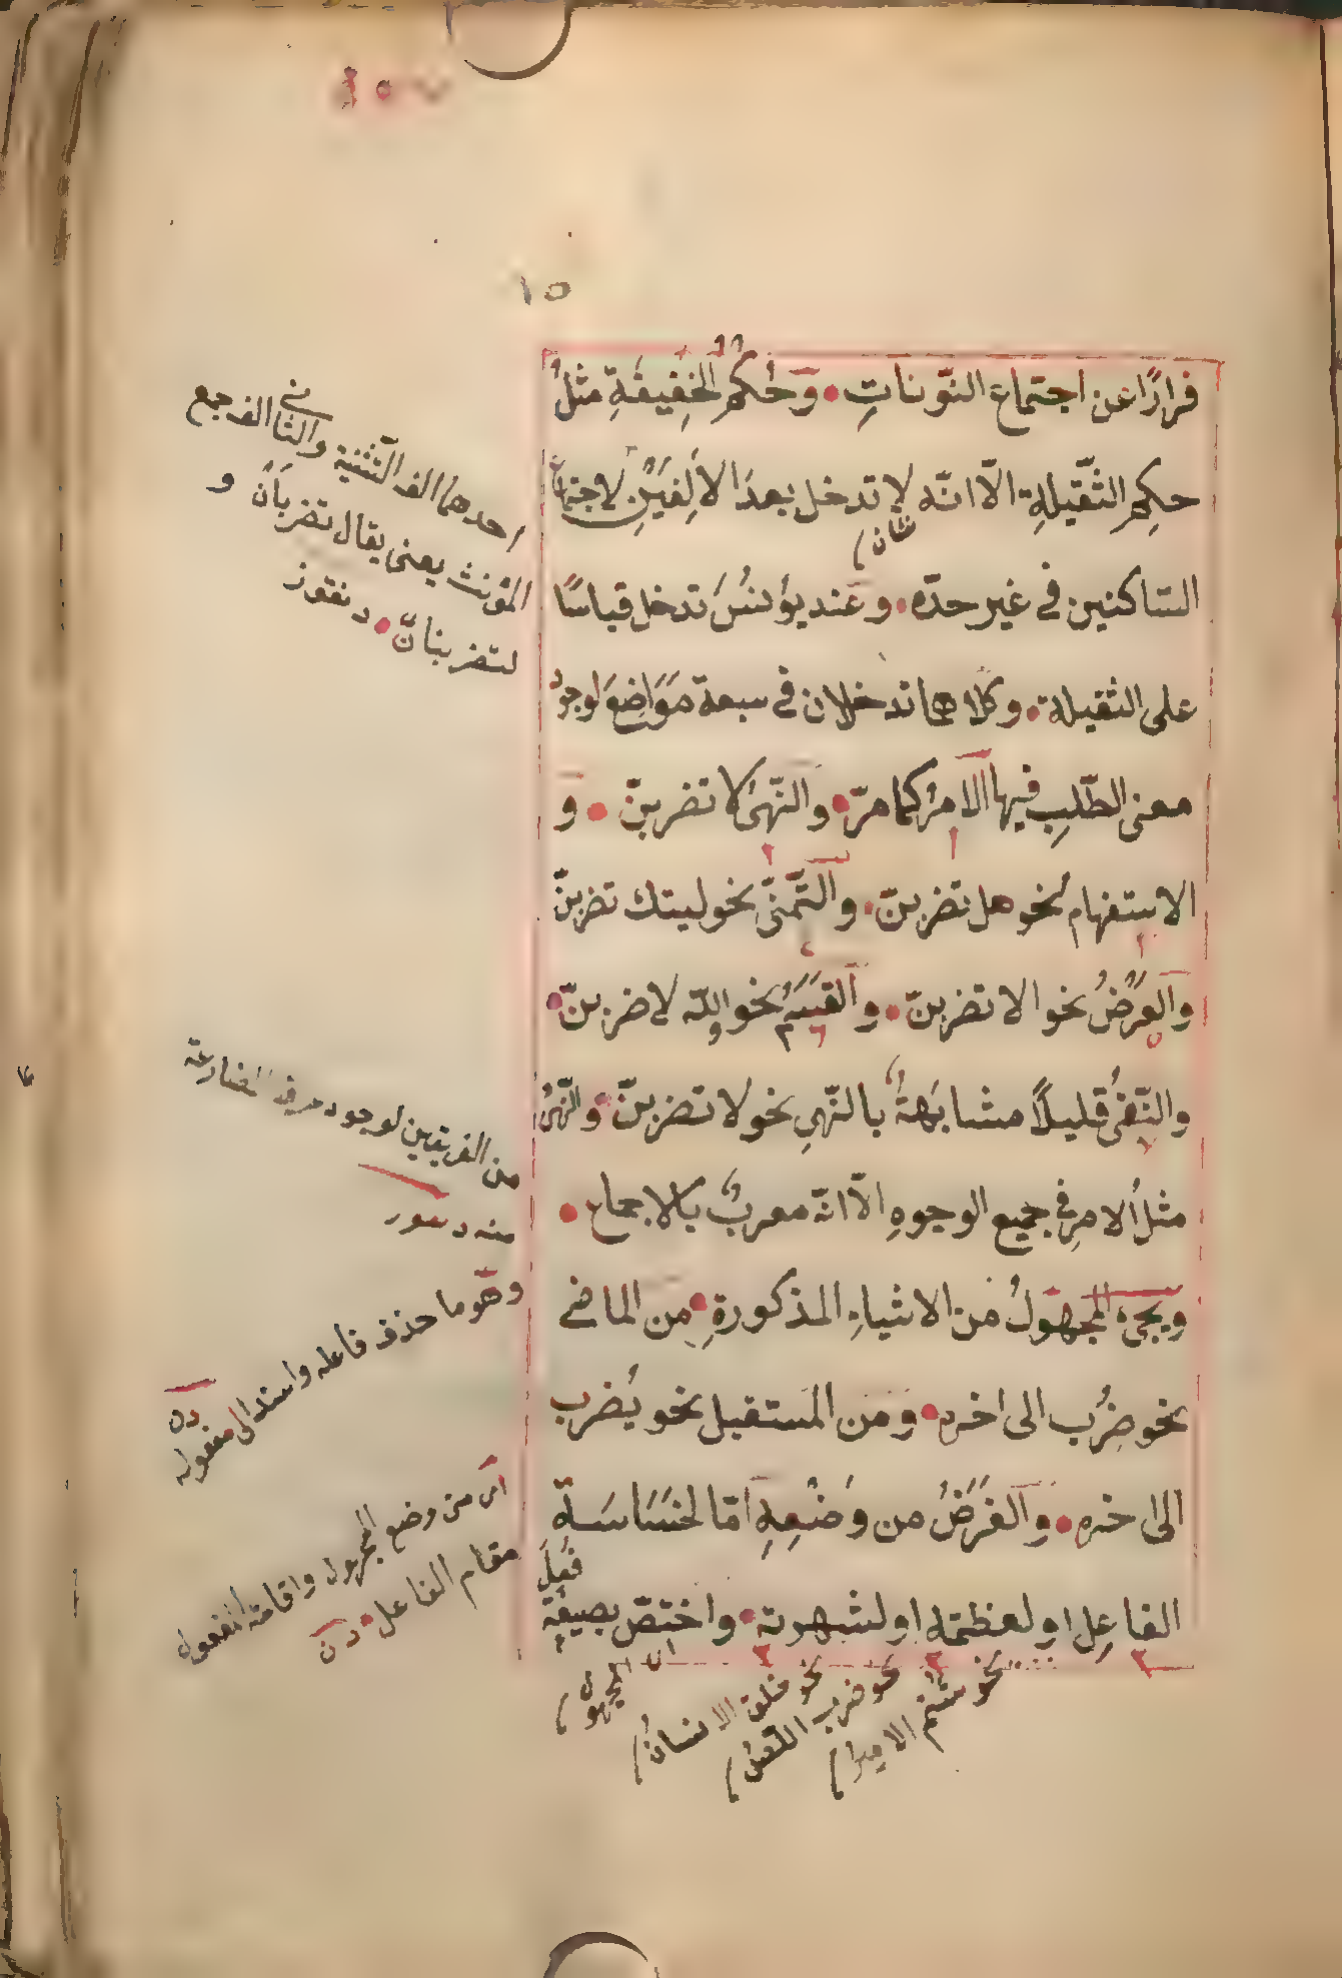 ١٥
فرارًا عن اجتماع النّونات وحُكمُ الخفيفةِ مثلُ
حكمِ الثّقيلةِ الّا انّه لا تدخل بعدَ الالِفَينِ لاجتماع
السّاكنين فى غير حدّه وعند يونسُ تدخل قياسًا
على الثقيلة وكلاهما تدخلان فى سبعة مَوَاضِعَ لوجود
معنى الطّلبِ فيها الامرُ كما مرّ والنّهىُ لا تضربنّ و
الاستفهام نحو هل تضربنّ والتّمنّى نحو ليتك تضربنّ
والعَرْضُ نحو الا تضربنّ والقَسَمُ نحو والله لاضربنّ
والنّفىُ قليلاً مشابهةً بالنّهىِ نحو لا تضربنّ والنّهىُ
مثلُ الامرِ فى جميع الوجوهِ الّا انّه معربٌ بالاجماع
ويجىء المجهولُ من الاشياءِ المذكورةِ من الماضى
نحو ضُرِب الى اخره ومن المستقبل نحو يُضرب
الى اخره والغَرَضُ من وَضْعِهِ امّا لخَسَاسَة
الفاعِلِ او لعظمته او لشهرته واختصّ بصيغة
فُعِلَ
احدهما الف التّثنية والثّانى الف جمع
المؤنث يعنى يقال تضربانّ و
لتضربنانّ دنقوز
من الفريقين لوجود حرف المضارعة
منه
وهو ما حذف فاعله واسند الى مفعوله
اى من وضع المجهول واقامة المفعول
مقام الفاعل
نحو شتم الامير
نحو ضرب اللّصّ
نحو خلق الانسان
اى المجهول